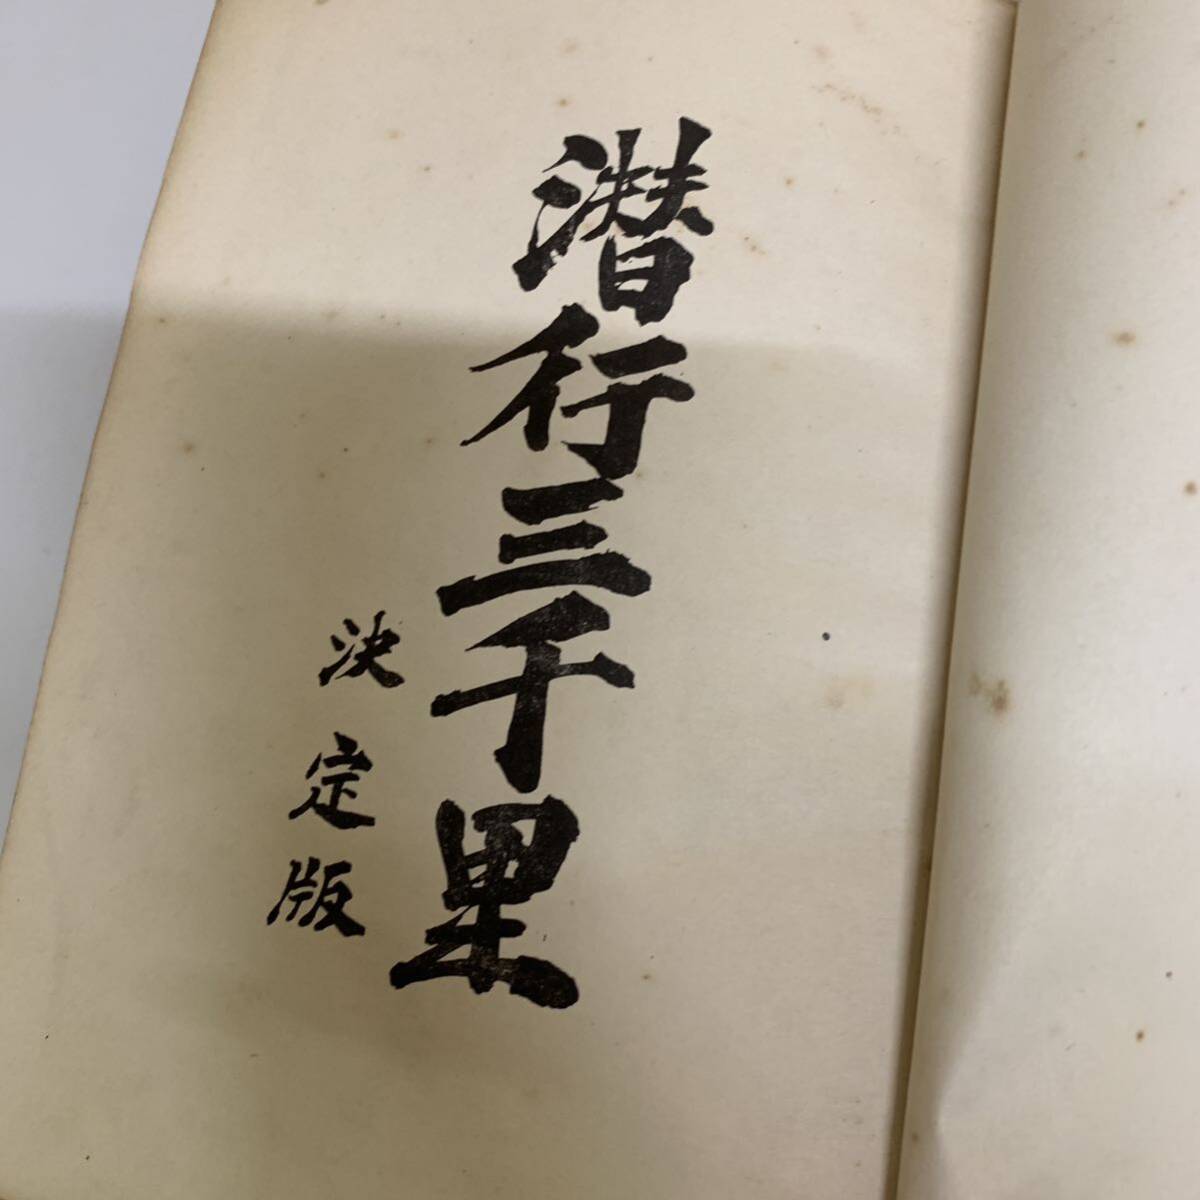 潜行三千里
決定版